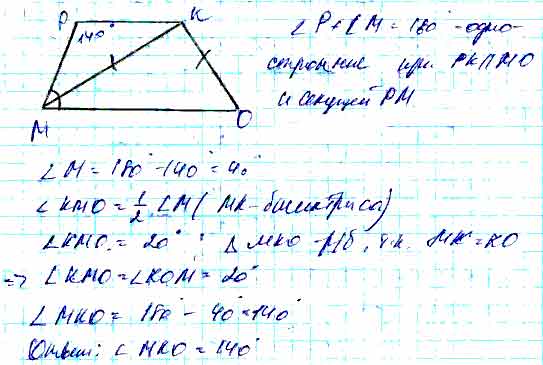 P
K
140°
M
O
∠P+∠M=180° - одно-
сторонние при PK∥MO
и секущей PM
∠M = 180° - 140° = 40°
∠KMO = 1/2 ∠M (MK - биссектриса)
∠KMO = 20° ; △ MKO - р/б, т.к. MK = KO
=> ∠KMO = ∠KOM = 20°
∠MKO = 180° - 40° = 140°
Ответ: ∠MKO = 140°